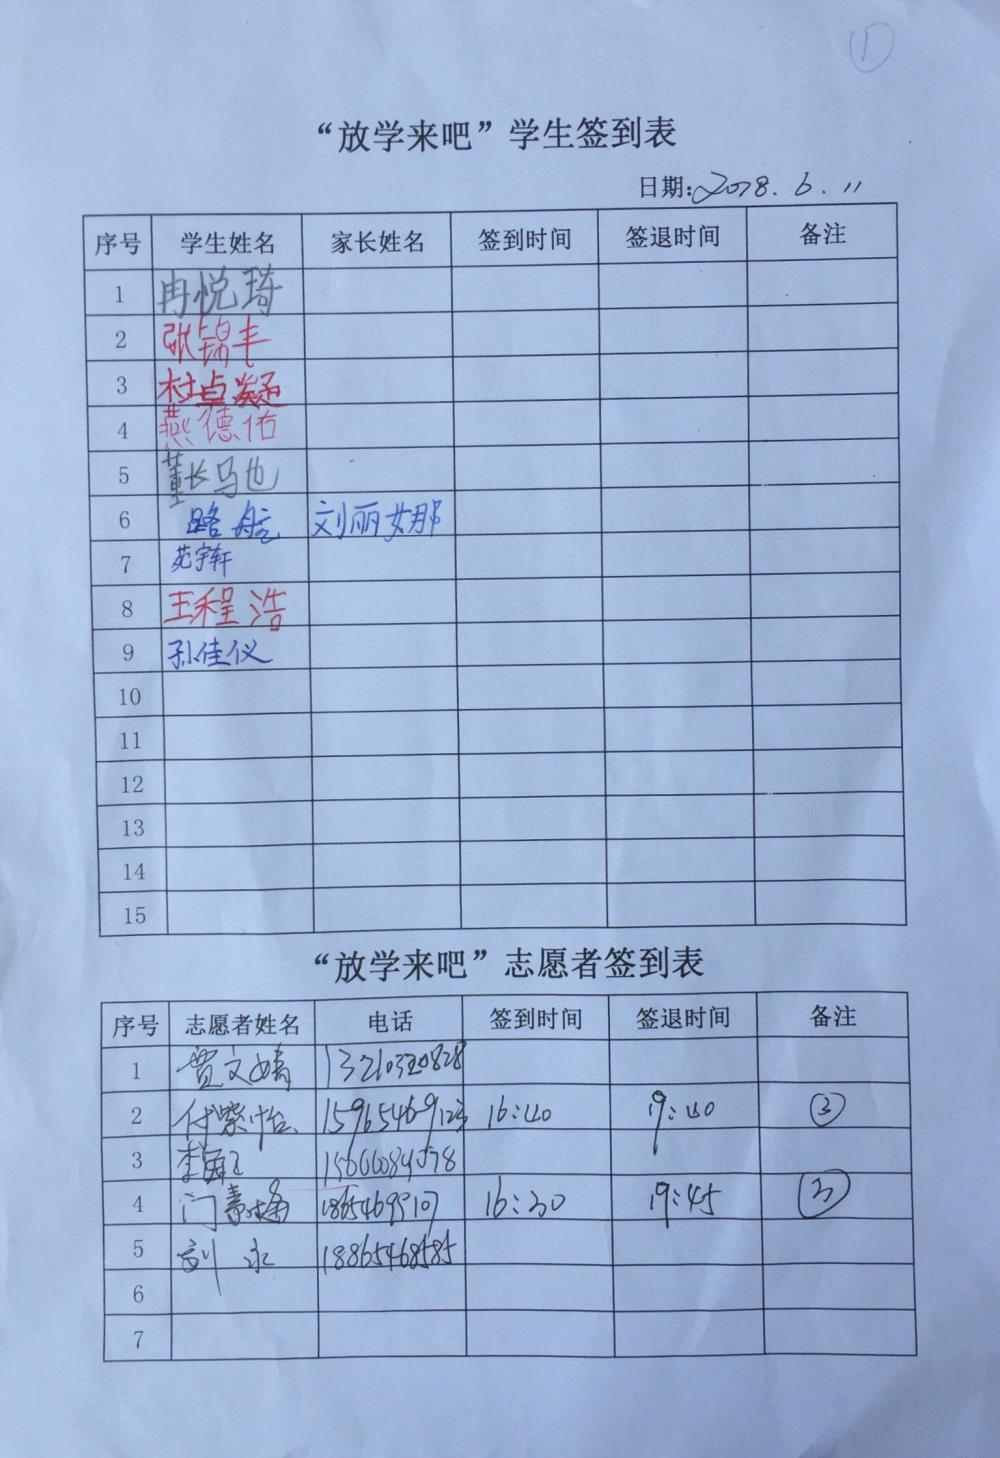 ①
“放学来吧”学生签到表
日期:2018.6.11
序号 学生姓名 家长姓名 签到时间 签退时间 备注
1 冉悦琦
2 张锦丰
3 杜卓凝
4 燕德佑
5 董长马也
6 路航 刘丽娜
7 苑宇轩
8 王程浩
9 孙佳仪
10
11
12
13
14
15
“放学来吧”志愿者签到表
序号 志愿者姓名 电话 签到时间 签退时间 备注
1 贾文婧 13210320828
2 付紫怡 16:40 19:40 ③
3 李
4 门 18654699107 16:30 19:45 ③
5 刘永 18865468585
6
7